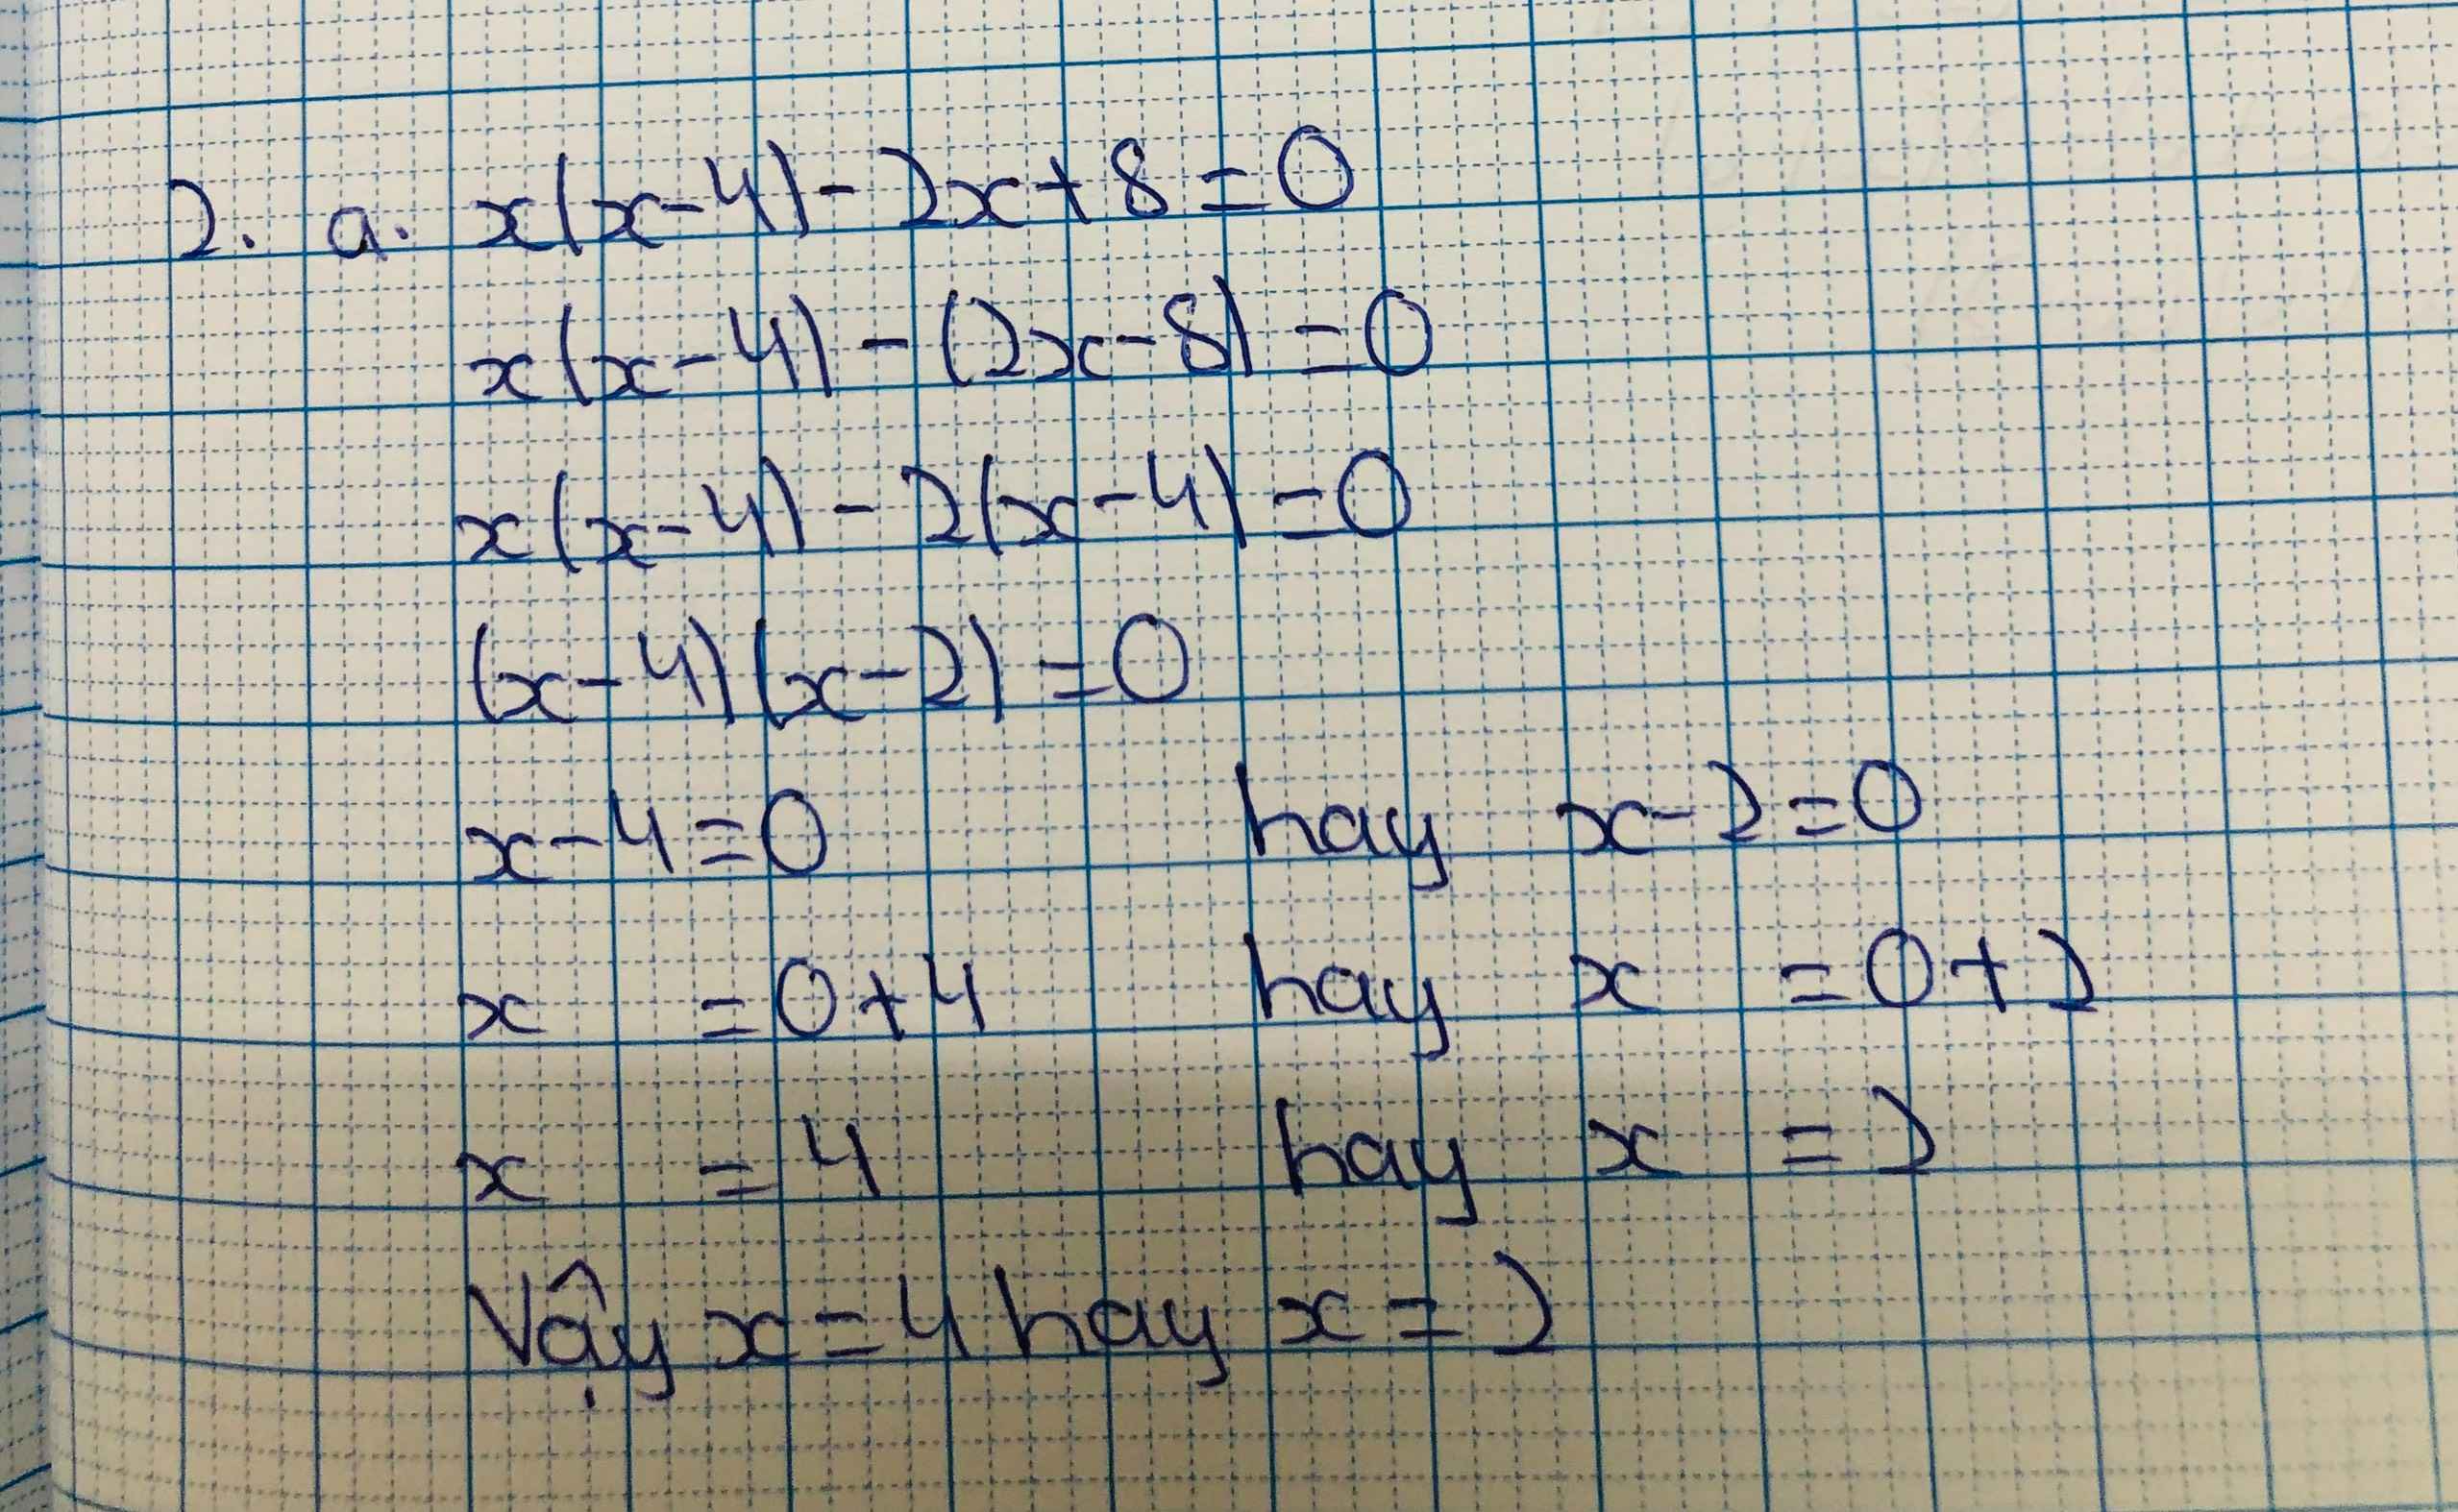 2. a. x(x-4)-2x+8=0
x(x-4)-(2x-8)=0
x(x-4)-2(x-4)=0
(x-4)(x-2)=0
x-4=0 hay x-2=0
x =0+4 hay x =0+2
x =4 hay x =2
Vậy x=4 hay x=2